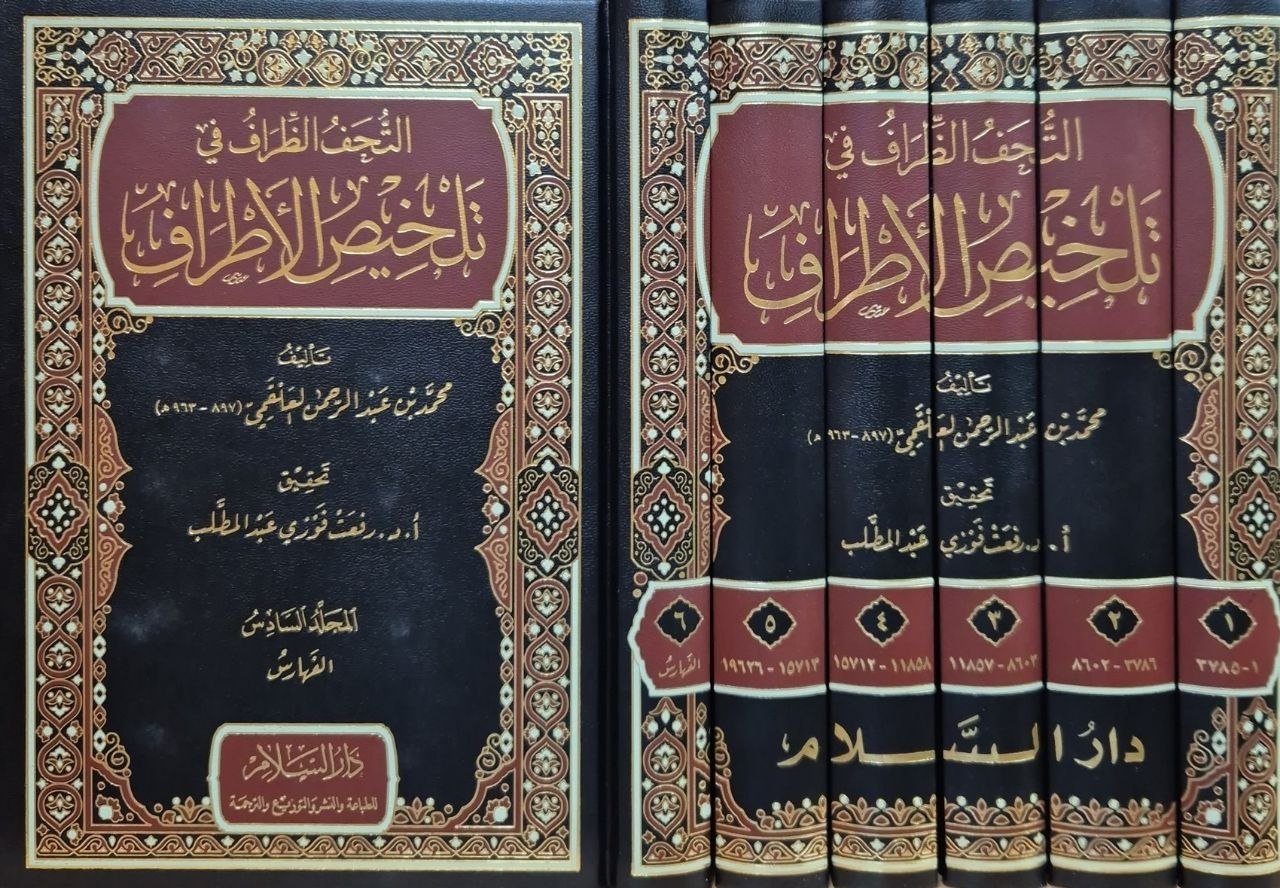 التُّحَفُ الظِّرَافُ في
تَلْخِيصِ الأَطْرَافِ
تَأليفُ
محمَّد بْن عَبْد الرَّحمن العَلْقَمِيّ (٨٩٧ - ٩٦٣ هـ)
تَحقِيق
أ. د. رفعَتْ فَوْزي عَبْد المطَّلب
المجَلَّد السَّادِسُ
الفَهارسُ
دَارُ السَّلَام
للطباعة والنشر والتوزيع والترجمة
التُّحَفُ الظِّرَافُ في
تَلْخِيصِ الأَطْرَافِ
تَأليفُ
محمَّد بْن عَبْد الرَّحمن العَلْقَمِيّ (٨٩٧ - ٩٦٣ هـ)
تَحقِيق
أ. د. رفعَتْ فَوْزي عَبْد المطَّلب
١ ٢ ٣ ٤ ٥ ٦
١-٣٧٨٥ ٣٧٨٦-٨٦٠٢ ٨٦٠٣-١١٨٥٧ ١١٨٥٨-١٥٧١٢ ١٥٧١٣-١٩٦٢٦ الفَهارسُ
دارُ السَّلام